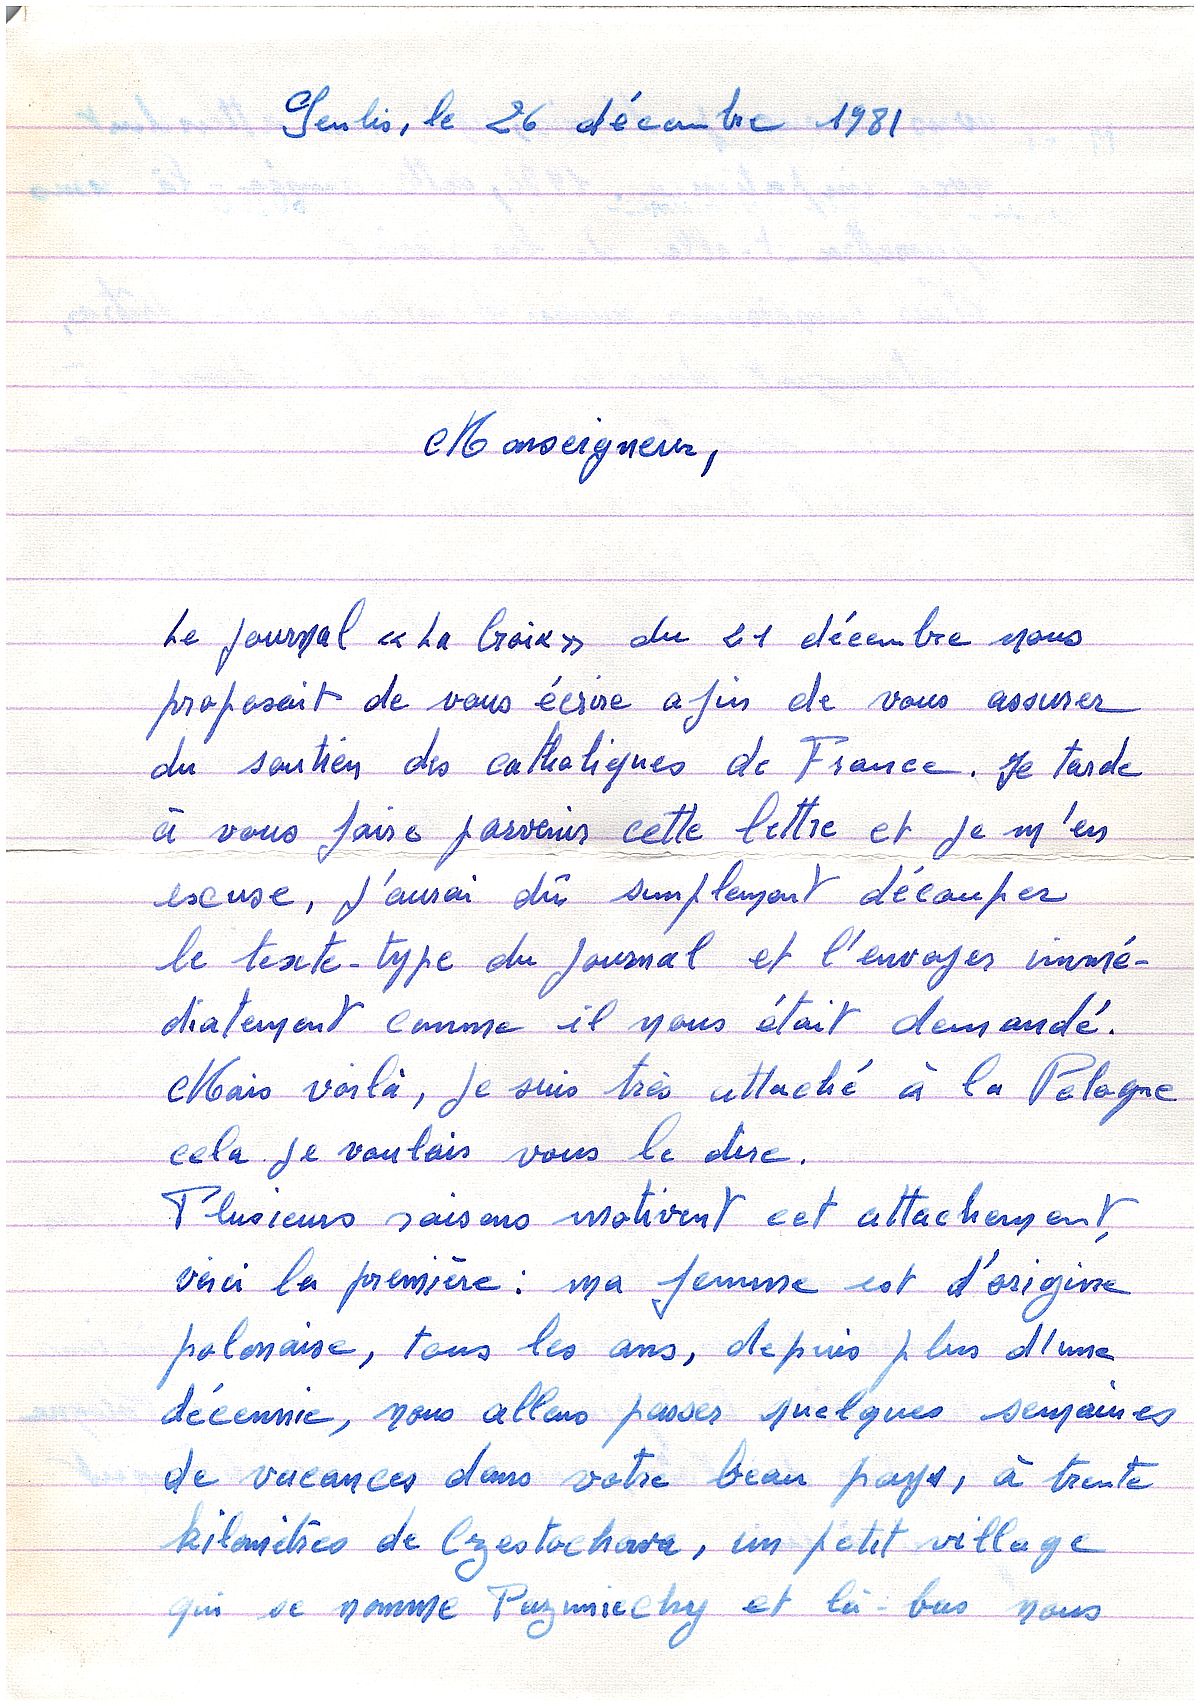 Senlis, le 26 décembre 1981
Monseigneur,
Le journal « La Croix » du 21 décembre nous
proposait de vous écrire afin de vous assurer
du soutien des catholiques de France. Je tarde
à vous faire parvenir cette lettre et je m'en
excuse, j'aurai dû simplement découper
le texte-type du journal et l'envoyer immé-
diatement comme il nous était demandé.
Mais voilà, je suis très attaché à la Pologne
cela je voulais vous le dire.
Plusieurs raisons motivent cet attachement,
voici la première : ma femme est d'origine
polonaise, tous les ans, depuis plus d'une
décennie, nous allons passer quelques semaines
de vacances dans votre beau pays, à trente
kilomètres de Czestochova, un petit village
qui se nomme et là-bas nous